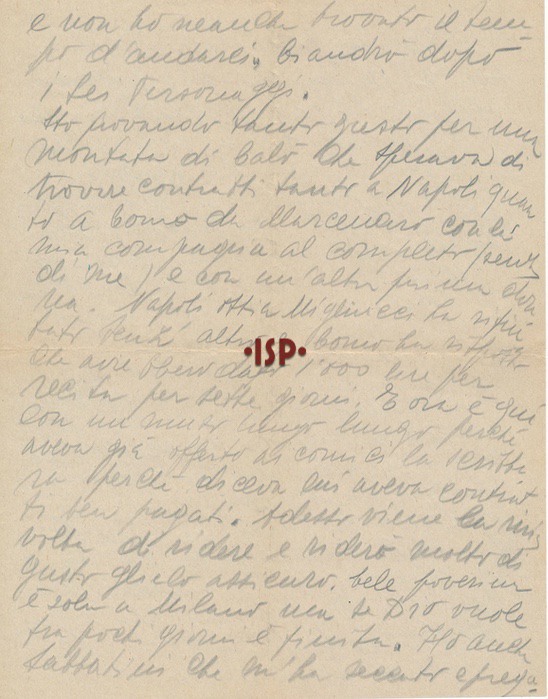 e non ho neanche trovato il tem-
po d'andarci. Ci andrò dopo
i Sei Personaggi.
Sto provando tanto gusto per una
montata di Calò che sperava di
trovare contratti tanto a Napoli quan
to a Como da Marcenaro con la
mia compagnia al completo (senza
di me) e con un'altra prima don
na. Napoli ossia Miglinicci ha rifiu
tato senz'altro e Como ha risposto
che avrebbero dato 1'000 lire per
recita per sette giorni. E ora è qui
con un muso lungo lungo perché
aveva già offerto ai comici la scrittu
ra perché diceva lui aveva contrat
ti ben pagati. Adesso viene la mia
volta di ridere e riderò molto di
gusto glielo assicuro. Lele poverina
è sola a Milano ma se Dio vuole
tra pochi giorni è finita. Ho anche
Sabbatini che m'ha seccato
•ISP•